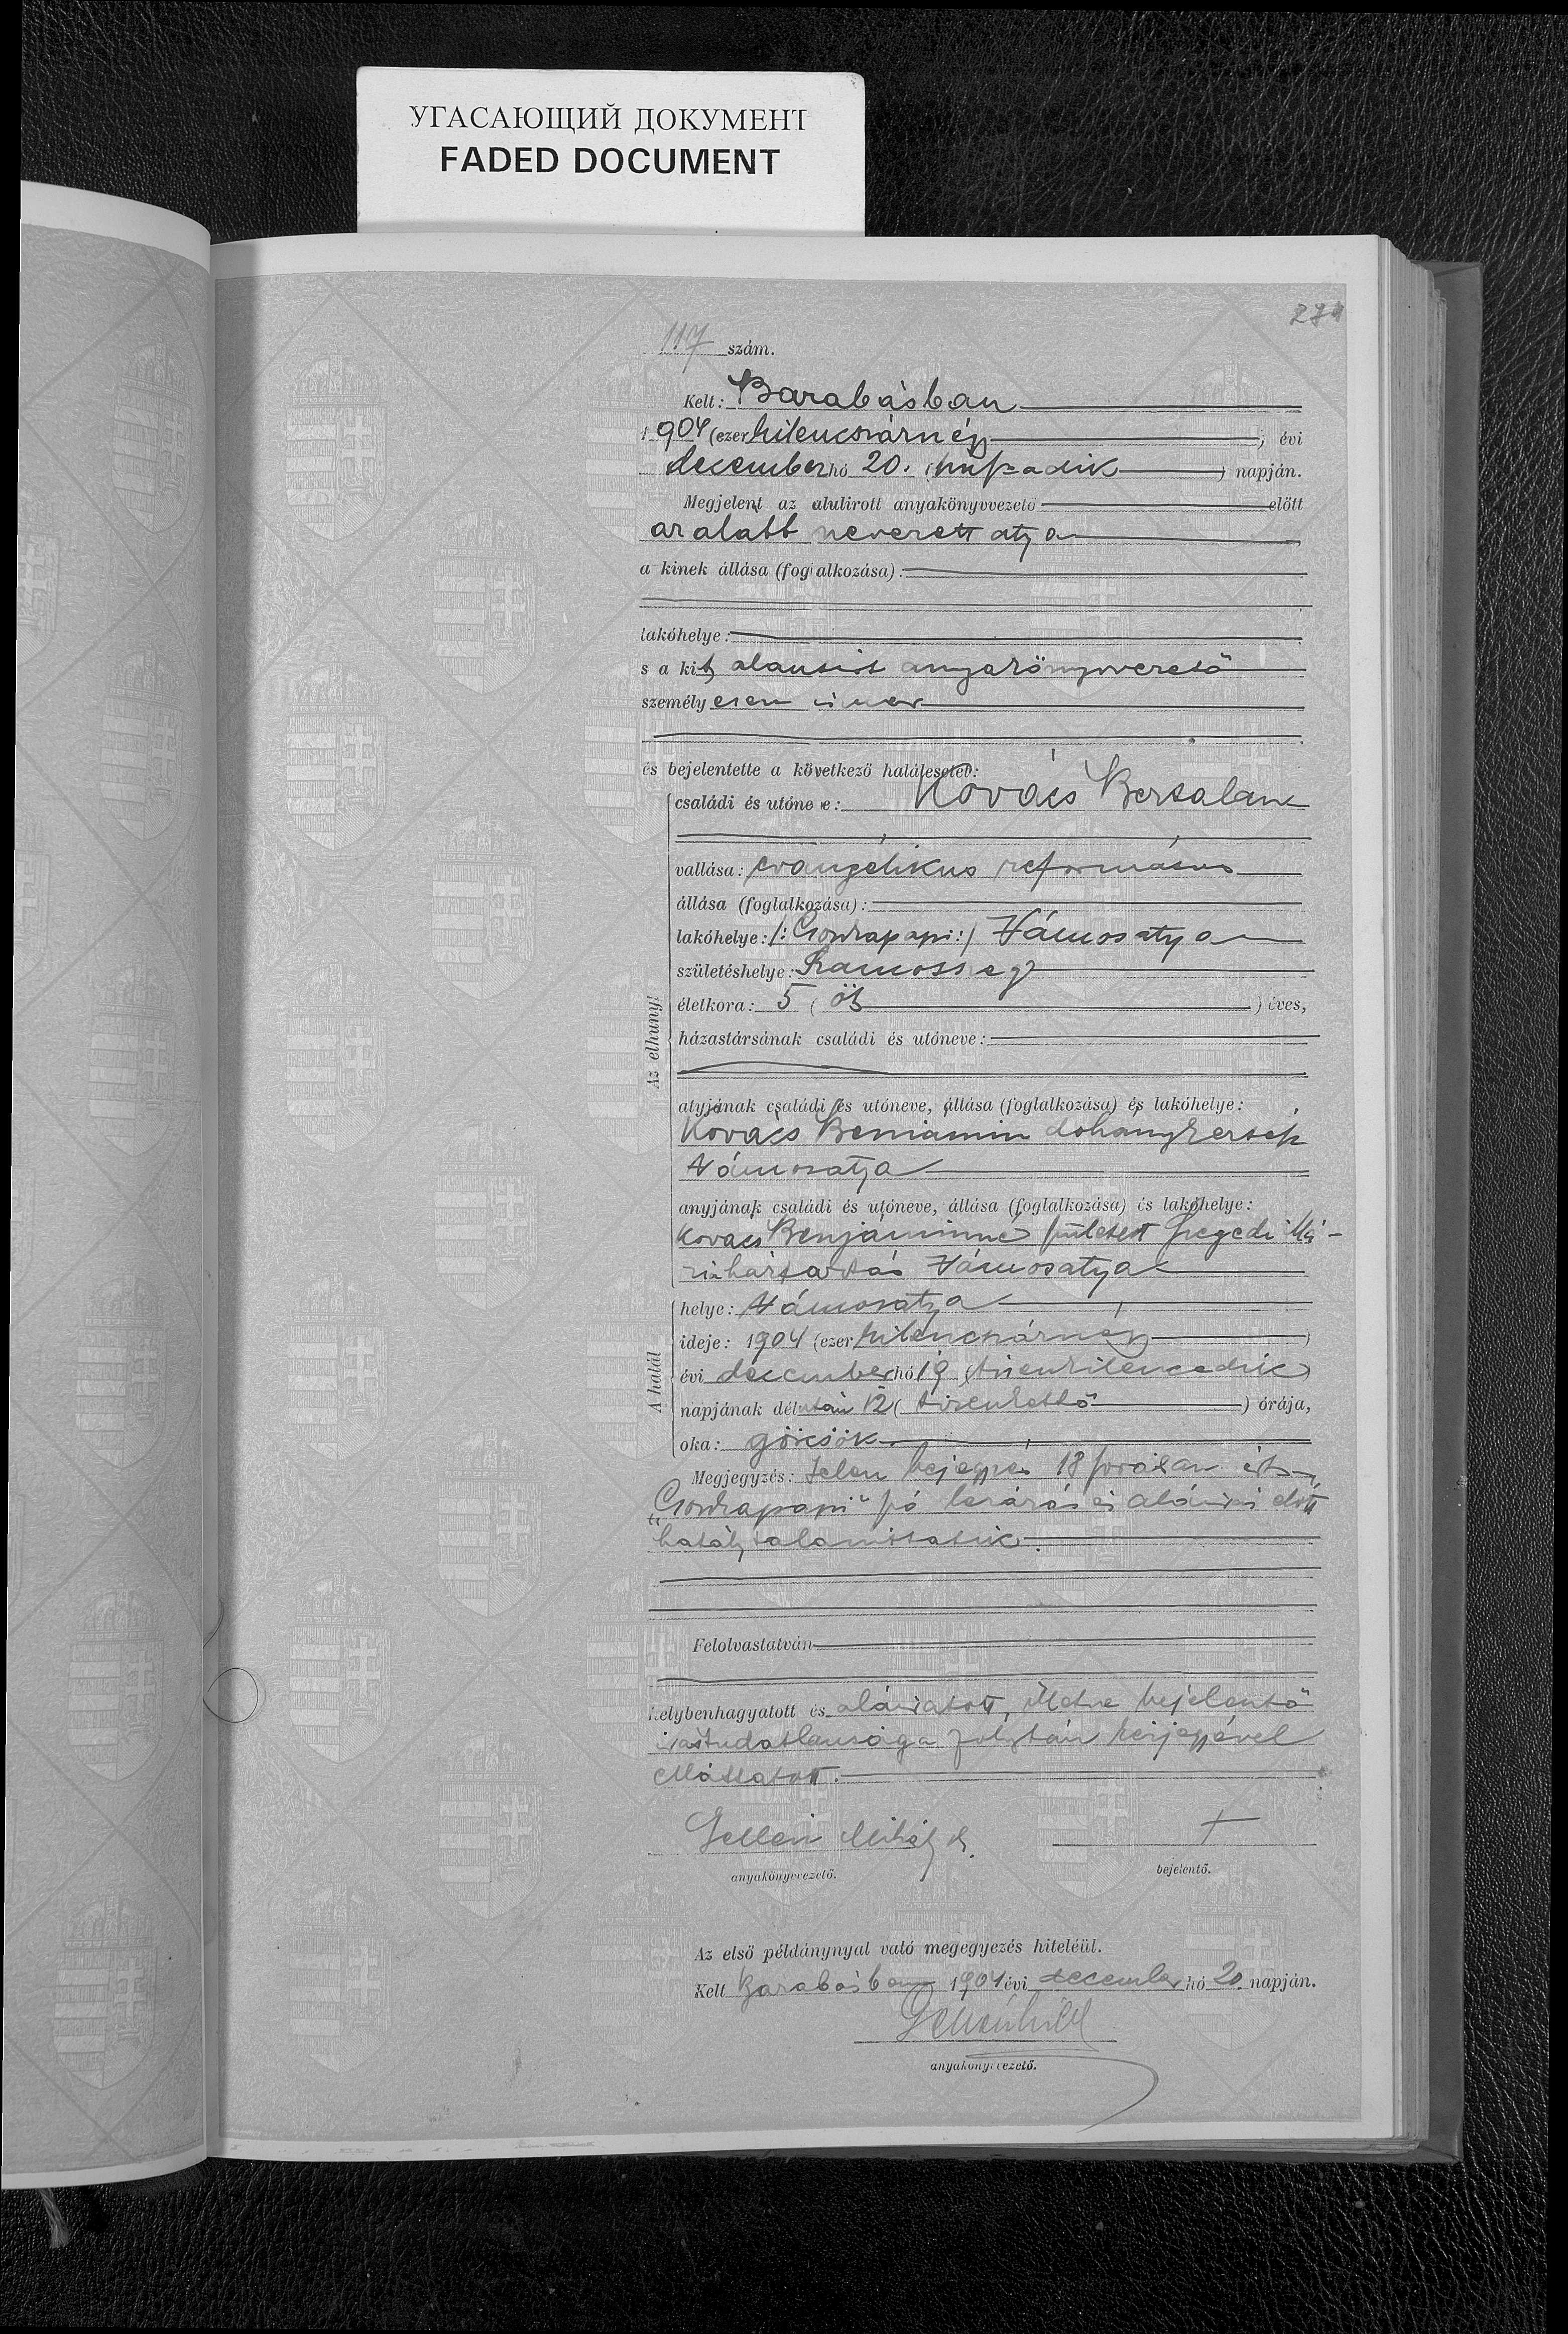 УГАСАЮЩИЙ ДОКУМЕНТ
FADED DOCUMENT
117 szám.
Kelt: Barabásban
1904 (ezer kilencszáznégy) évi
december hó 20. (huszadik) napján.
Megjelent az alulirott anyakönyvvezető előtt
az alább nevezett atya
a kinek állása (foglalkozása):
lakóhelye:
s a kit alantirt anyakönyvvezető
személyesen ismer
és bejelentette a következő halálesetet:
Az elhunyt
családi és utóneve: Kovács Bertalan
vallása: evangélikus református
állása (foglalkozása):
lakóhelye: /: Csonkapapi :/ Vámosatya
születéshelye: Szamosszeg
életkora: 5 (öt) éves,
házastársának családi és utóneve:
atyjának családi és utóneve, állása (foglalkozása) és lakóhelye:
Kovács Beniamin dohánykertész
Vámosatya
anyjának családi és utóneve, állása (foglalkozása) és lakóhelye:
Kovács Benjáminné született Szegedi Má-
ria háztartás Vámosatya
A halál
helye: Vámosatya
ideje: 1904 (ezer kilencszáznégy)
évi december hó 19 (tizenkilencedik)
napjának délután 12 (tizenkettő) órája,
oka: görcsök
Megjegyzés: Jelen bejegyzés 18 sorában irt
„Csonkapapi" szó lezárás és aláirás előtt
hatálytalanittatik.
Felolvastatván
helybenhagyatott és aláiratott, illetve bejelentő
irástudatlansága folytán kézjegyével
elláttatott.
Mihály
anyakönyvvezető.
bejelentő.
Az első példánynyal való megegyezés hiteléül.
Kelt Barabásban 1904 évi december hó 20. napján.
anyakönyvvezető.